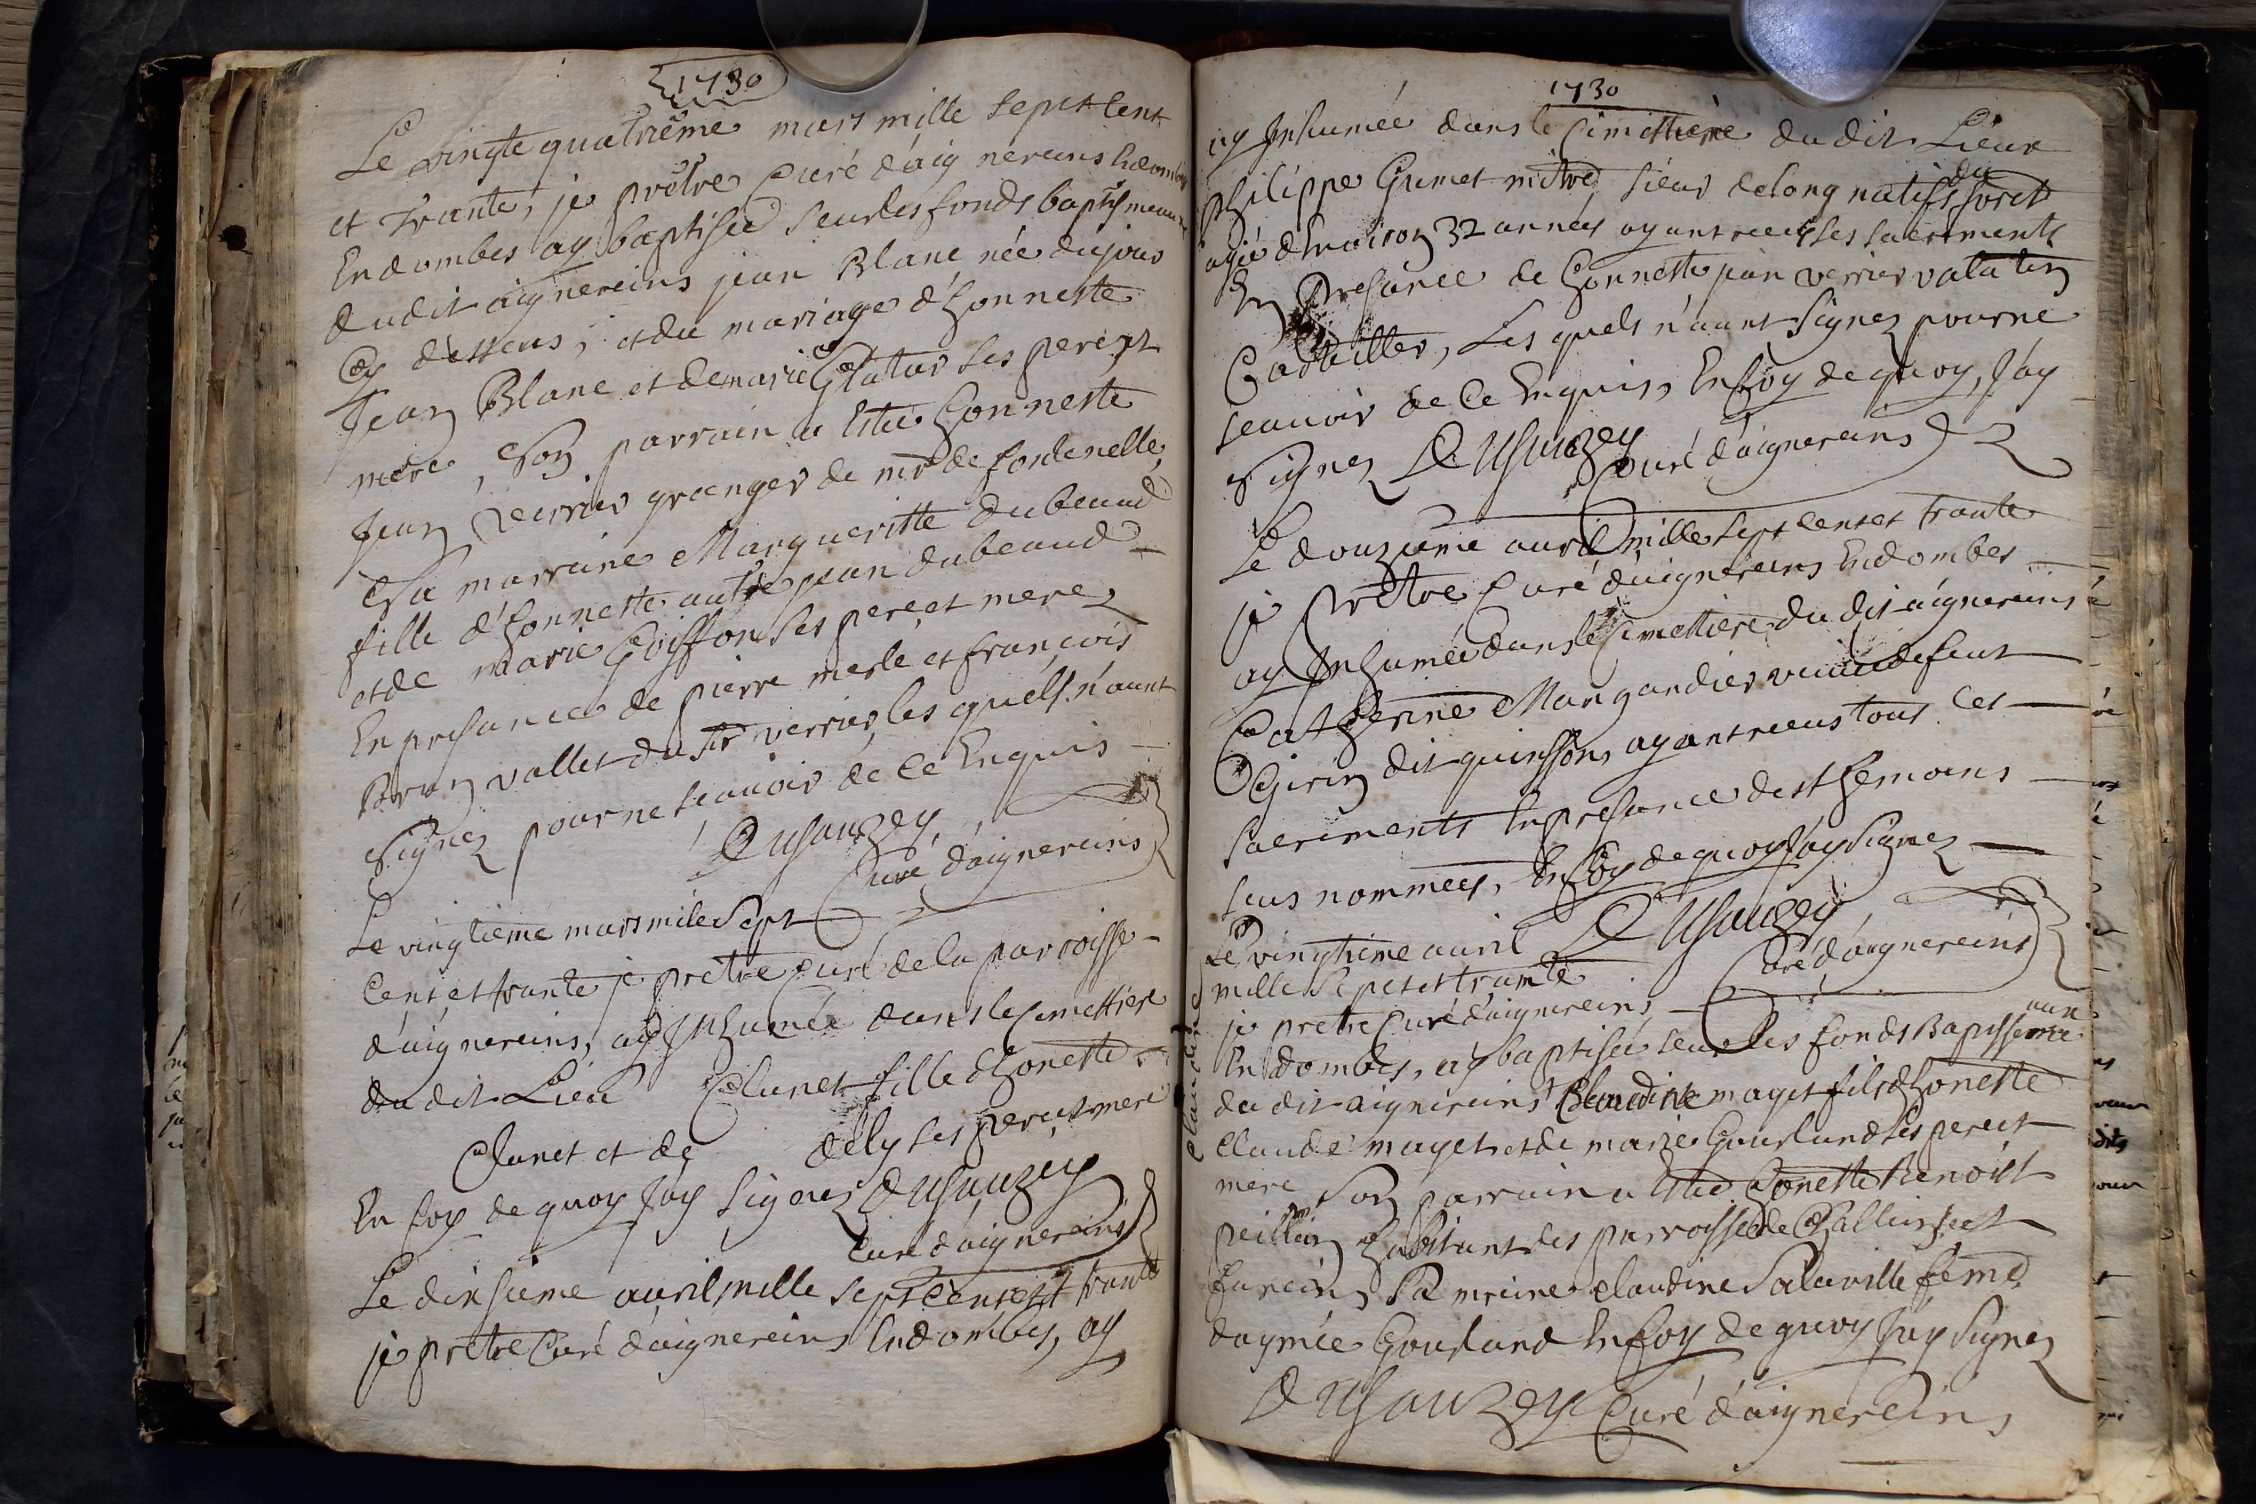 1730
Le vingte quatriême mars mille sept Cent
et trante, je prêtre Curé d'aignereins Endombes
En dombes ay baptisée seur les fonds baptismeaux
dudit aignereins jean Blanc née du jour
Cy dessus, et du mariage d'honneste
Jean Blanc et de marie ses pere et
mere, Son parrain a Estée honneste
Jean Verrier granger de mr de fontenelle
Sa marraine Margueritte Dubeaud
fille d'honneste autre jean dubeaud
et de marie Goiffon ses pere et mere
En presance de pierre merle et françois
Brun vallet du sr verrier, les quells n'aunt
Signez pour ne sçauoir de ce Enquis
Dusauzey
Curé d'aignereins
Le vingtieme mars mile sept
Cent et trante je pretre curé de la parroisse
d'aignereins, ay Inhumée dans le Cemettiere
du dit Lieu Clunet fille d'honeste
Clunet et de dely ses pere et mere
En foy de quoy J'ay signez Dusauzey
Curé d'aignereins
Le dixsieme auril mille sept cent et trante
je prêtre Curé d'aignereins Endombes, ay
1730
ay Inhumée dans le Cimettiere du dit Lieux
du
philippe Gumet mitre sieur delong natif foret
agée d'Enuiron 32 années ayant receus ses sacrements
En presance de honneste jean verrier valatin
Les quels n'aunt Signez pour ne
sçauoir de Ce Enquis, En foy de quoy, J'ay
Signez Dusauzey
Curé d'aignereins
Le douzieme auril mille sept Cent et trante
je Prêtre Curé d'aignereins Endombes
ay Inhumée dans le Cimettiere du dit aignereins
Catherine Mangandier veuue defeut
Girin dit quinsson, ayant receus tous Ces
sacrements En presance des themoins
sus nommées, En foy de quoy J'ay Signez
Dusauzey
Curé d'aignereins
Le vingtieme auril
mille sept et trante
je pretre Curé d'aignereins
aux
En dombes, ay baptisée seur les fonds Baptisseme
du dit aignireins Claudine mayet fils d'honeste
Claudine
claude mayet et de marie Gourland ses pere et
mere Son parrain a Estée honeste Benoist
peillon habitant des parroisse de Challeins et
fareins, Sa mreine claudine Salaville feme
d'aymée Gourland En foy de quoy J'ay Signez
Dusauzey Curé d'aignereins